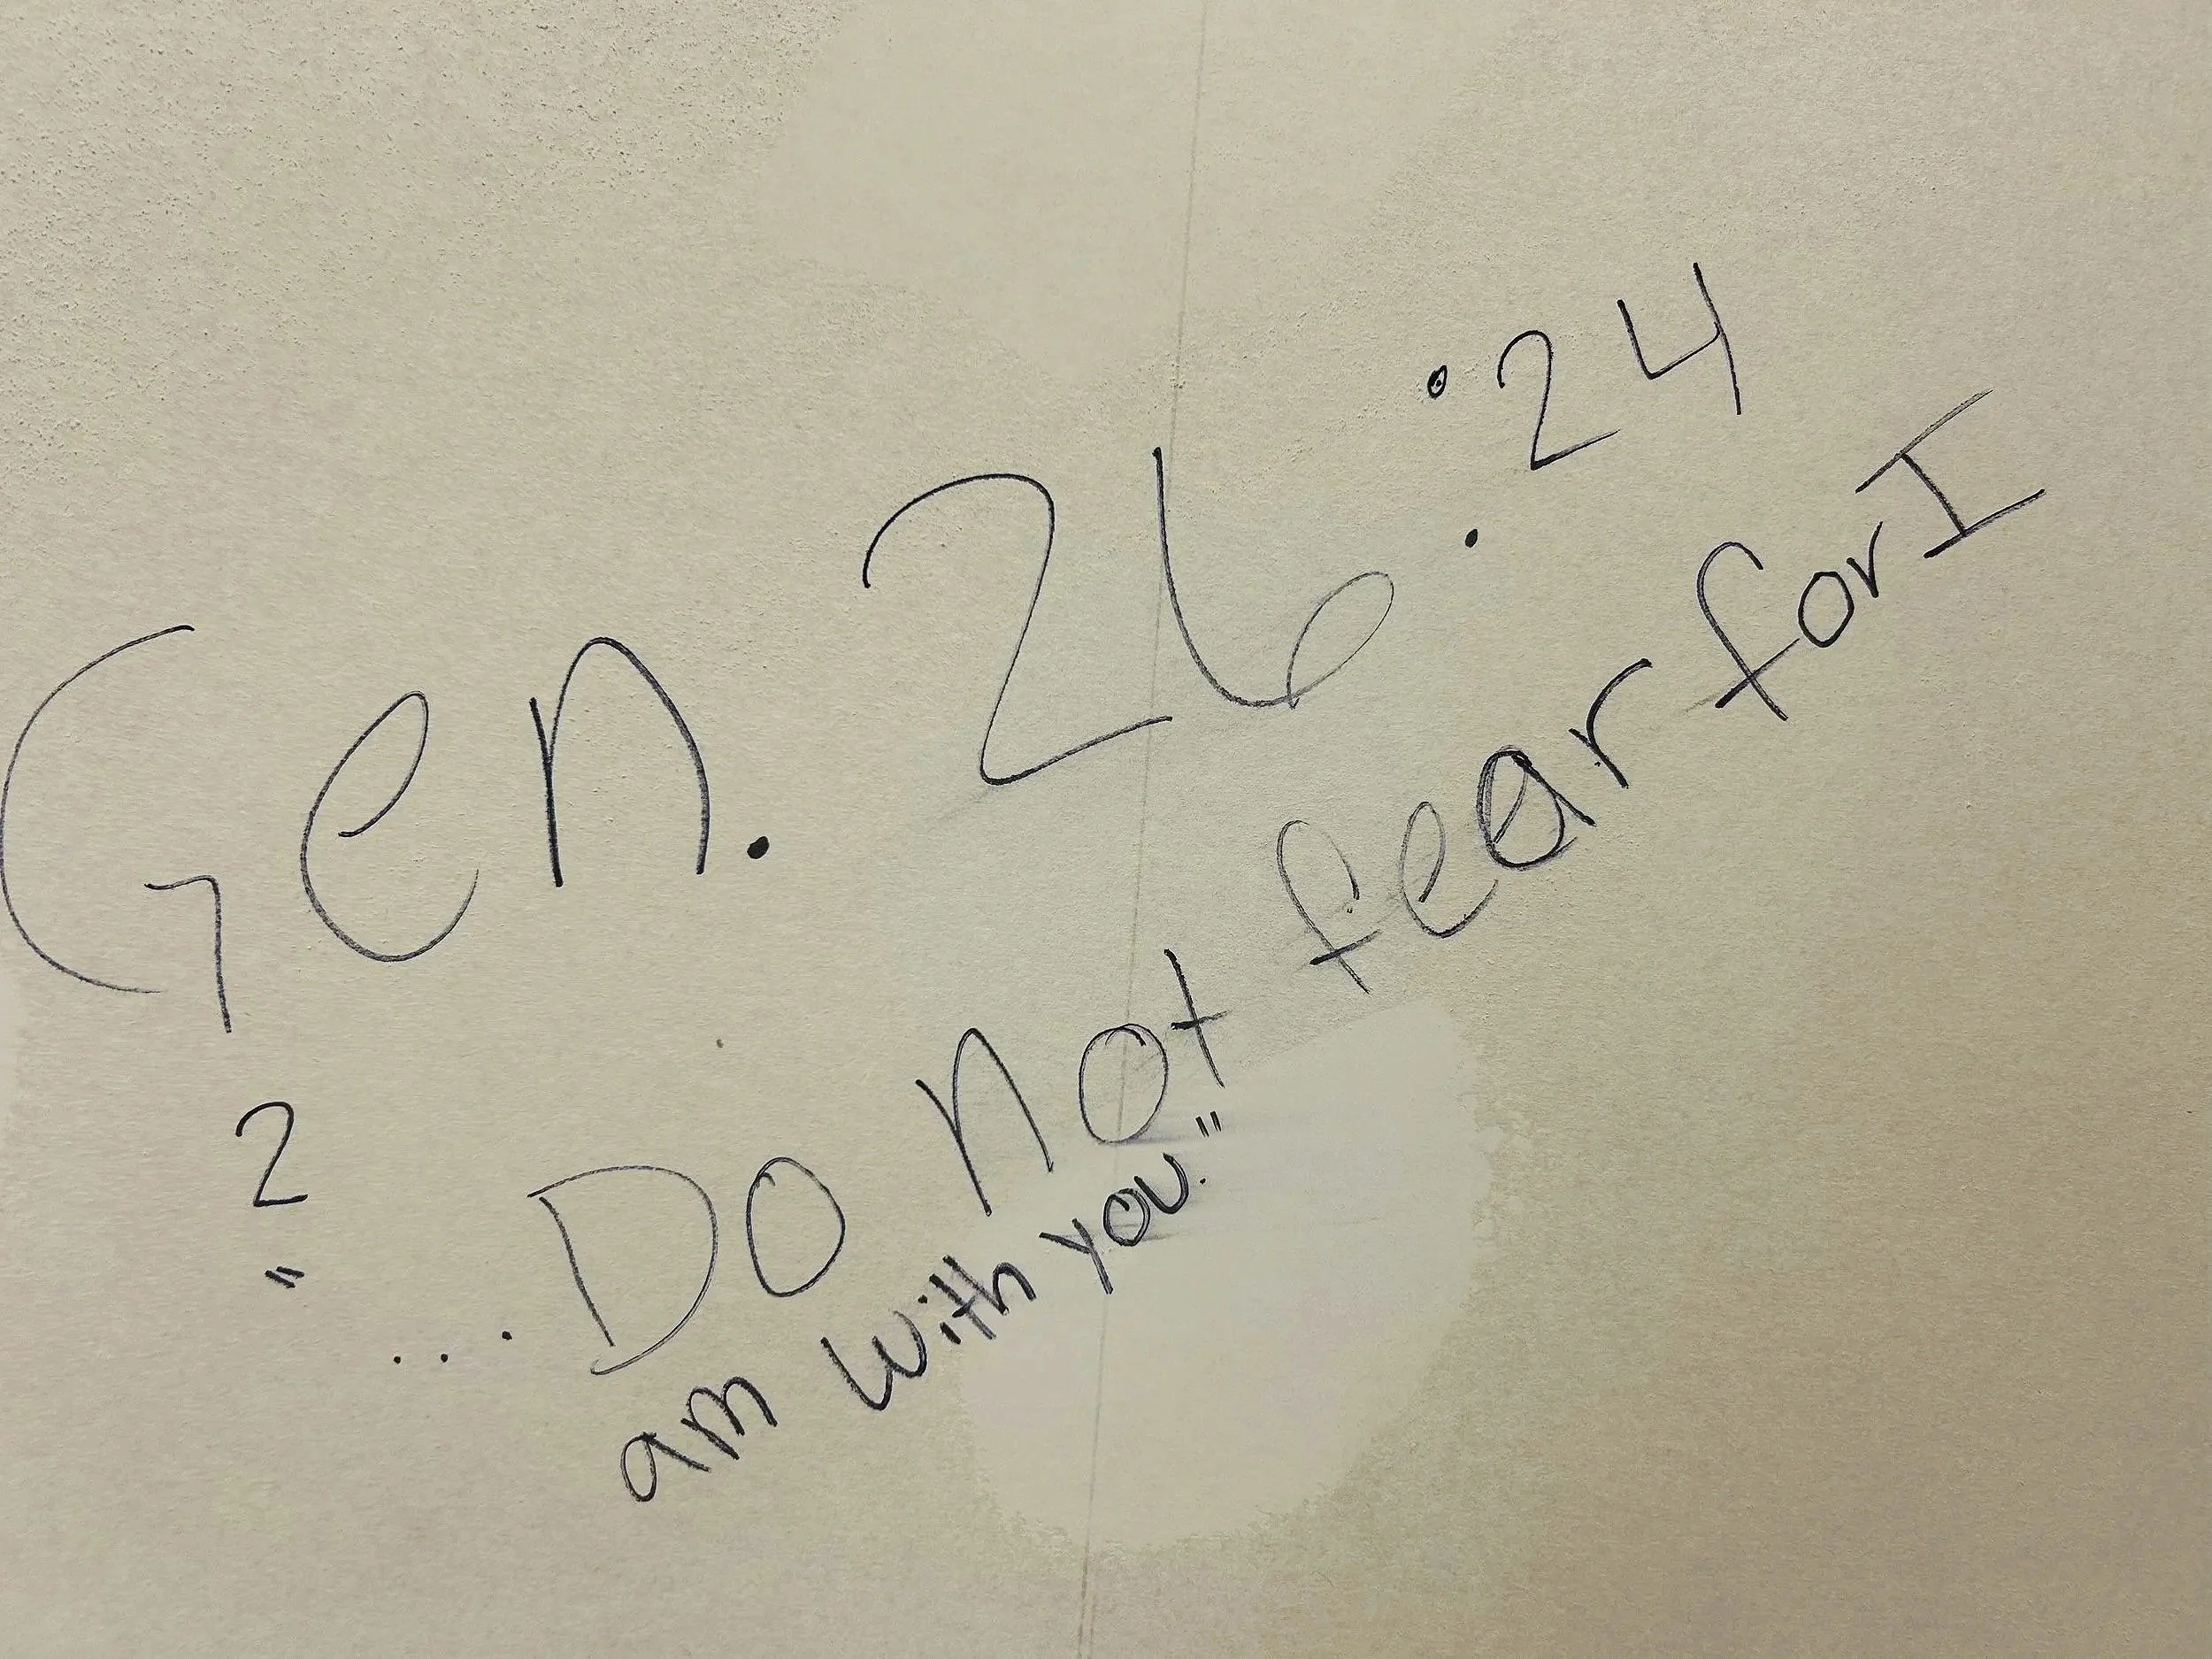 Gen. 26:24
2
"...Do not fear for I
am with you."